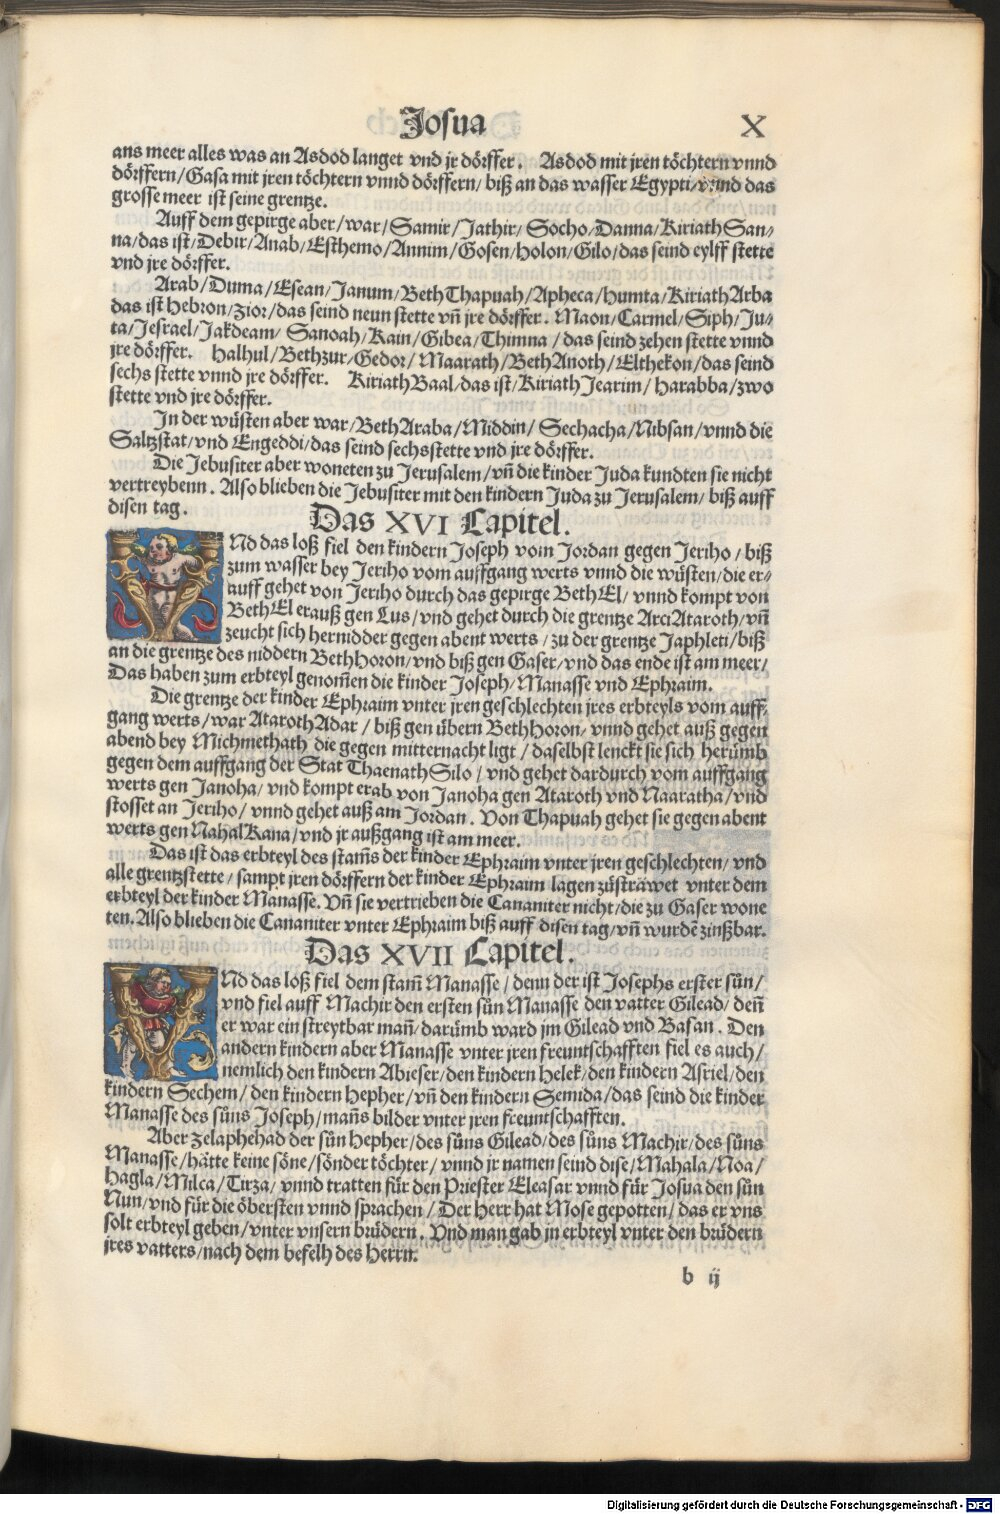 Josua X
ans meer alles was an Asdod langet vnd jr dörffer. Asdod mit jren töchtern vnnd
dörffern/Gasa mit jren töchtern vnnd dörffern/ biß an das wasser Egypti/vnnd das
grosse meer ist seine grentze.
Auff dem gepirge aber/war/Samir/Jathir/ Socho/Danna/KiriathSan-
na/das ist/Debir/Anab/Esthemo/Annim/Gosen/Holon/Gilo/das seind eylff stette
vnd jre dörffer.
Arab/Duma/Esean/Janum/BethThapuah/Apheca/Humta/KiriathArba
das ist Hebron/Zior/das seind neun stette vñ jre dörffer. Maon/Carmel/Siph/Ju-
ta/Jesrael/Jakdeam/ Sanoah/Kain/Gibea/Thimna / das seind zehen stette vnnd
jre dörffer. Halhul/Bethzur/Gedor/ Maarath/BethAnoth/Elthekon/das seind
sechs stette vnnd jre dörffer. KiriathBaal/das ist/KiriathJearim/Harabba/zwo
stette vnd jre dörffer.
In der wüsten aber war/BethAraba/Middin/ Sechacha/Nibsan/vnnd die
Saltzstat/vnd Engeddi/das seind sechsstette vnd jre dörffer.
Die Jebusiter aber woneten zu Jerusalem/vñ die kinder Juda kundten sie nicht
vertreybenn. Also blieben die Jebusiter mit den kindern Juda zu Jerusalem/ biß auff
disen tag.
Das XVI Capitel.
VNd das loß fiel den kindern Joseph vom Jordan gegen Jeriho / biß
zum wasser bey Jeriho vom auffgang werts vnnd die wüsten/die er-
auff gehet von Jeriho durch das gepirge BethEl/ vnnd kompt von
BethEl erauß gen Lus/vnd gehet durch die grentze ArciAtaroth/vñ
zeucht sich hernidder gegen abent werts / zu der grentze Japhleti/biß
an die grentze des niddern BethHoron/vnd biß gen Gaser/vnd das ende ist am meer/
Das haben zum erbteyl genom̄en die kinder Joseph/Manasse vnd Ephraim.
Die grentze der kinder Ephraim vnter jren geschlechten jres erbteyls vom auff-
gang werts/war AtarothAdar / biß gen übern BethHoron/ vnnd gehet auß gegen
abend bey Michmethath die gegen mitternacht ligt / daselbst lenckt sie sich herümb
gegen dem auffgang der Stat ThaenathSilo / vnd gehet dardurch vom auffgang
werts gen Janoha/ vnd kompt erab von Janoha gen Ataroth vnd Naaratha/vnd
stosset an Jeriho/ vnnd gehet auß am Jordan. Von Thapuah gehet sie gegen abent
werts gen NahalKana/vnd jr außgang ist am meer.
Das ist das erbteyl des stam̄s der kinder Ephraim vnter jren geschlechten/ vnd
alle grentzstette/ sampt jren dörffern der kinder Ephraim lagen züsträwet vnter dem
erbteyl der kinder Manasse. Vñ sie vertrieben die Cananiter nicht/die zu Gaser wone
ten. Also blieben die Cananiter vnter Ephraim biß auff disen tag/vñ wurdē zinßbar.
Das XVII Capitel.
VNd das loß fiel dem stam̄ Manasse / denn der ist Josephs erster sün/
vnd fiel auff Machir den ersten sün Manasse den vatter Gilead/ deñ
er war ein streytbar mañ/ darümb ward jm Gilead vnd Basan. Den
andern kindern aber Manasse vnter jren freuntschafften fiel es auch/
nemlich den kindern Abieser/den kindern Helek/den kindern Asriel/den
kindern Sechem/ den kindern Hepher/ vñ den kindern Semida/das seind die kinder
Manasse des süns Joseph/mañs bilder vnter jren freuntschafften.
Aber Zelaphehad der sün Hepher/des süns Gilead/des süns Machir/des süns
Manasse/hätte keine söne/sönder töchter/ vnnd jr namen seind dise/Mahala/Noa/
Hagla/Milca/Tirza/ vnnd tratten für den Priester Eleasar vnnd für Josua den sün
Nun/vnd für die öbersten vnnd sprachen/ Der Herr hat Mose gepotten/ das er vns
solt erbteyl geben/vnter vnsern brüdern. Vnd man gab jn erbteyl vnter den brüdern
jres vatters/nach dem befelh des Herrn.
b ij
Digitalisierung gefördert durch die Deutsche Forschungsgemeinschaft - DFG